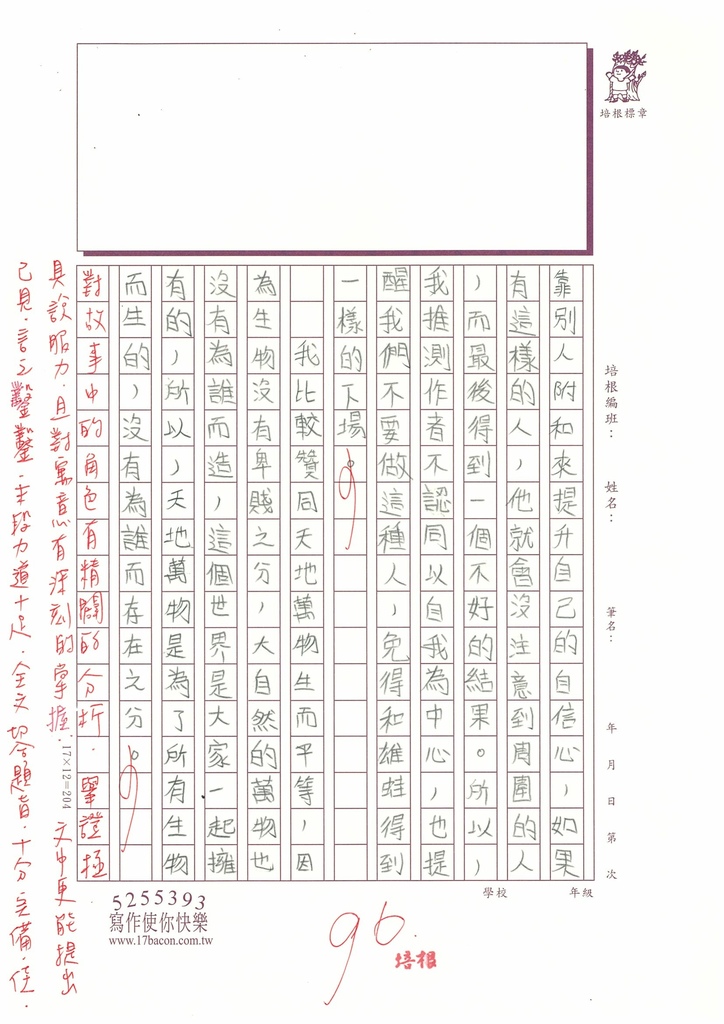 培根標章
培根編班：
姓名：
筆名：
年 月 日 第 次
學校
年級
靠別人附和來提升自己的自信心，如果
有這樣的人，他就會沒注意到周圍的人
，而最後得到一個不好的結果。所以，
我推測作者不認同以自我為中心，也提
醒我們不要做這種人，免得和雄蛙得到
一樣的下場。
我比較贊同天地萬物生而平等，因
為生物沒有卑賤之分，大自然的萬物也
沒有為誰而造，這個世界是大家一起擁
有的，所以，天地萬物是為了所有生物
而生的，沒有為誰而存在之分。
對故事中的角色有精闢的分析．舉證極
具說服力．且對寓意有深刻的掌握．文中更能提出
己見．言之鑿鑿．末段力道十足．全文切合題旨．十分完備．佳．
17×12=204
5255393
寫作使你快樂
www.17bacon.com.tw
96.
培根